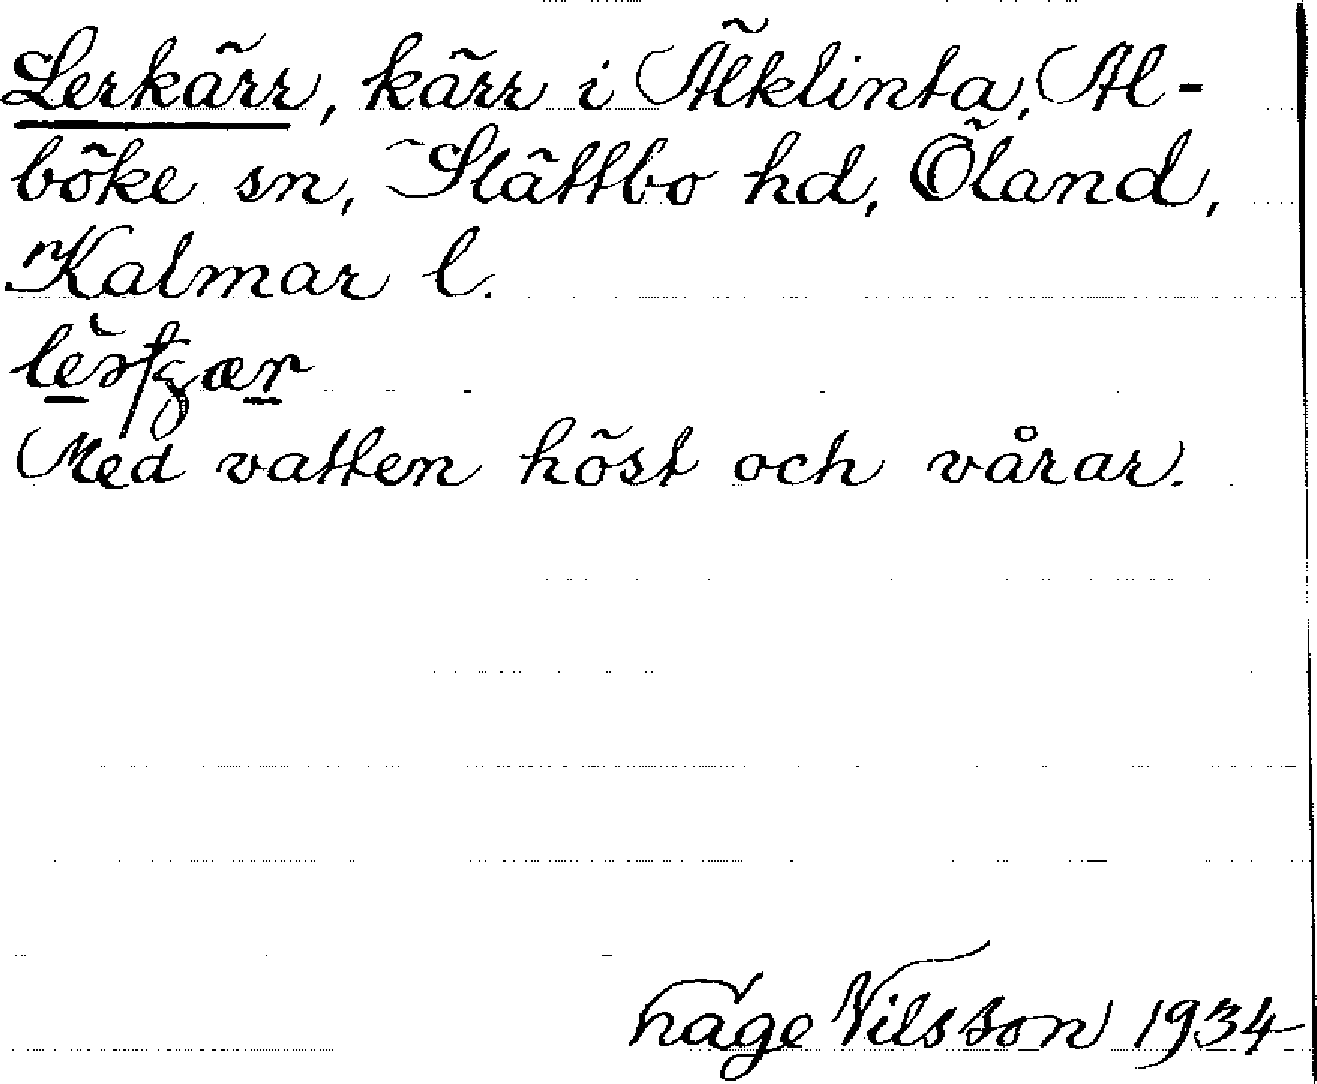 Lerkärr, kärr i Äleklinta, Al-
böke sn, Slättbo hd, Öland,
Kalmar l.
Med vatten höst och vårar.
Nilsson 1934